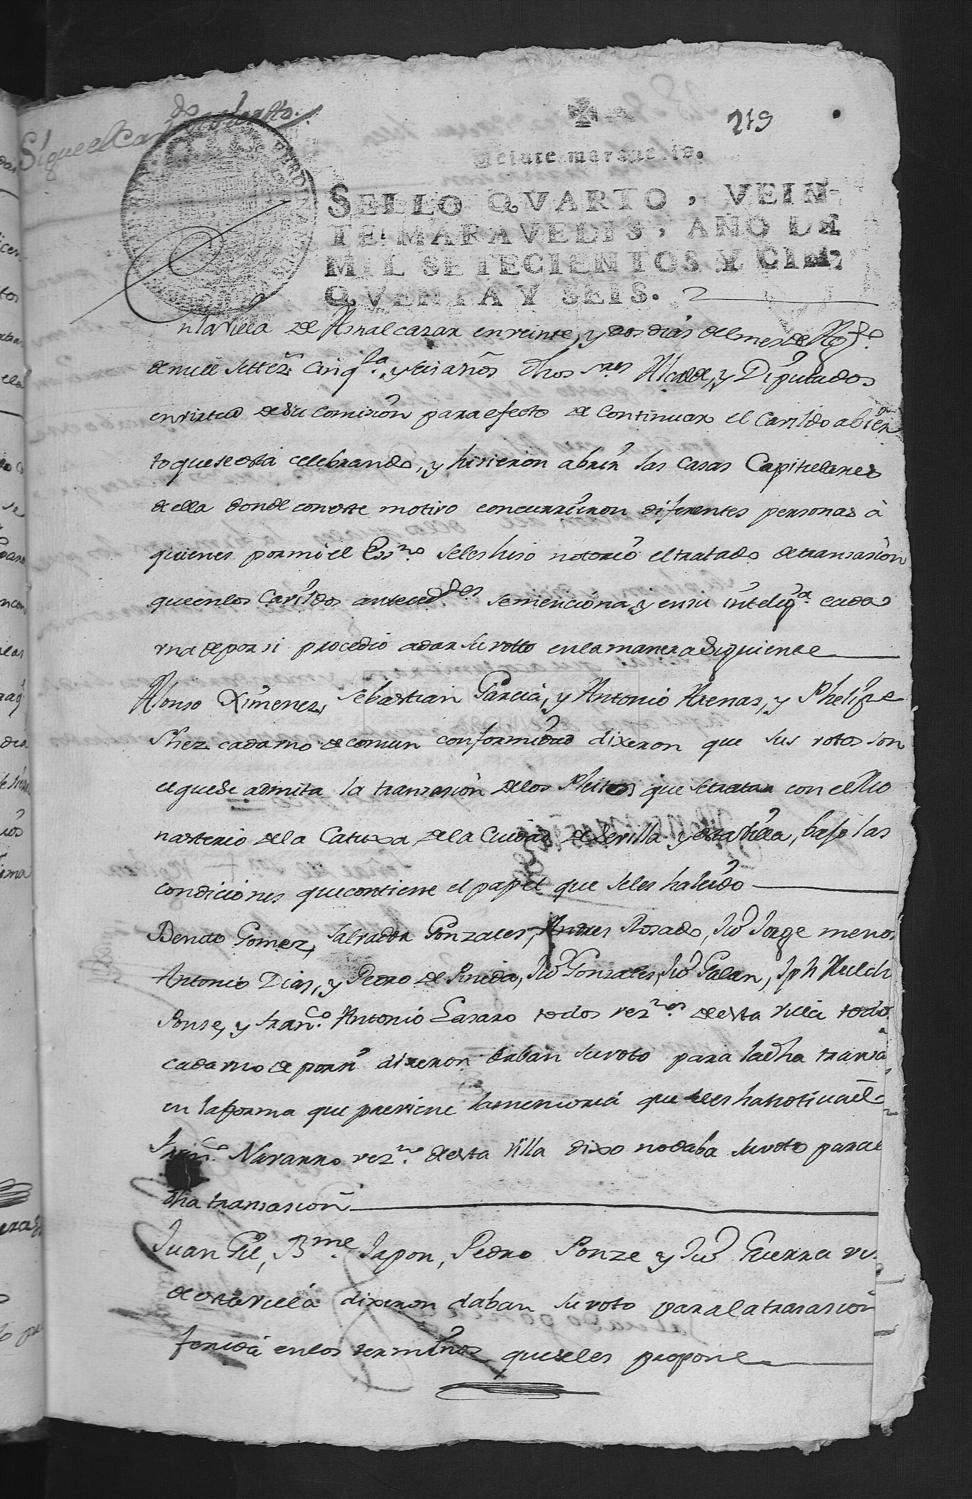 Sigue el Cav.do abierto.
219
Veinte maravedis.
SELLO QVARTO, VEIN-
TE MARAVEDIS, AÑO DE
MIL SETECIENTOS Y CIN-
QVENTA Y SEIS.
n la villa de Asnalcazar en veinte, y dos dias del mes de
de mill settez.s cinq.ta, y seis años dhos s.res Alcalde, y Diputados
en virtud de su comision para efecto de continuar el Cavildo abier
to que se esta celebrando, y hisieron abrir las casas Capitulares
de ella donde con este motivo concurrieron diferentes personas â
quienes por mi el Ess.no se les hiso notorio el tratado de transasion
que en los Cavildos anteced.tes se menciona, y en su intelig.a cada
vno de por si procedio a dar su votto en la manera siguiente
Alonso Ximenez, Sebastian Garcia, y Antonio Arenas, y Phelipe
Shez cada vno de comun conformidad dixeron que sus votos son
el que se admita la transasion de los Pleitos que se trata con el Mo
nasterio de la Cartuxa de la Ciudad de Sevilla y esta Villa, baje las
condiciones que contiene el papel que se les ha leido
Benito Gomez, Salvador Gonzales, Andres Rosado, Ju.o Jorge menor
Antonio Dias, y Pedro de Pineda, Ju.o Gonzales, Ju.o Galan, Jph Melch
Ponse, y Fran.co Antonio Lasaro todos vez.nos de esta villa todo
cada vno de por si dixeron daban su voto para la dha transa
en la forma que previene la memoria que se les ha
Fran.co Navarro vez.no de esta villa dixo no daba su voto para
dha transasion
Juan Gil, B.me Japon, Pedro Ponze y Ju.o Guerra ve
de esta villa dixeron daban su voto para la transasion
ferida en los terminos que se les propone